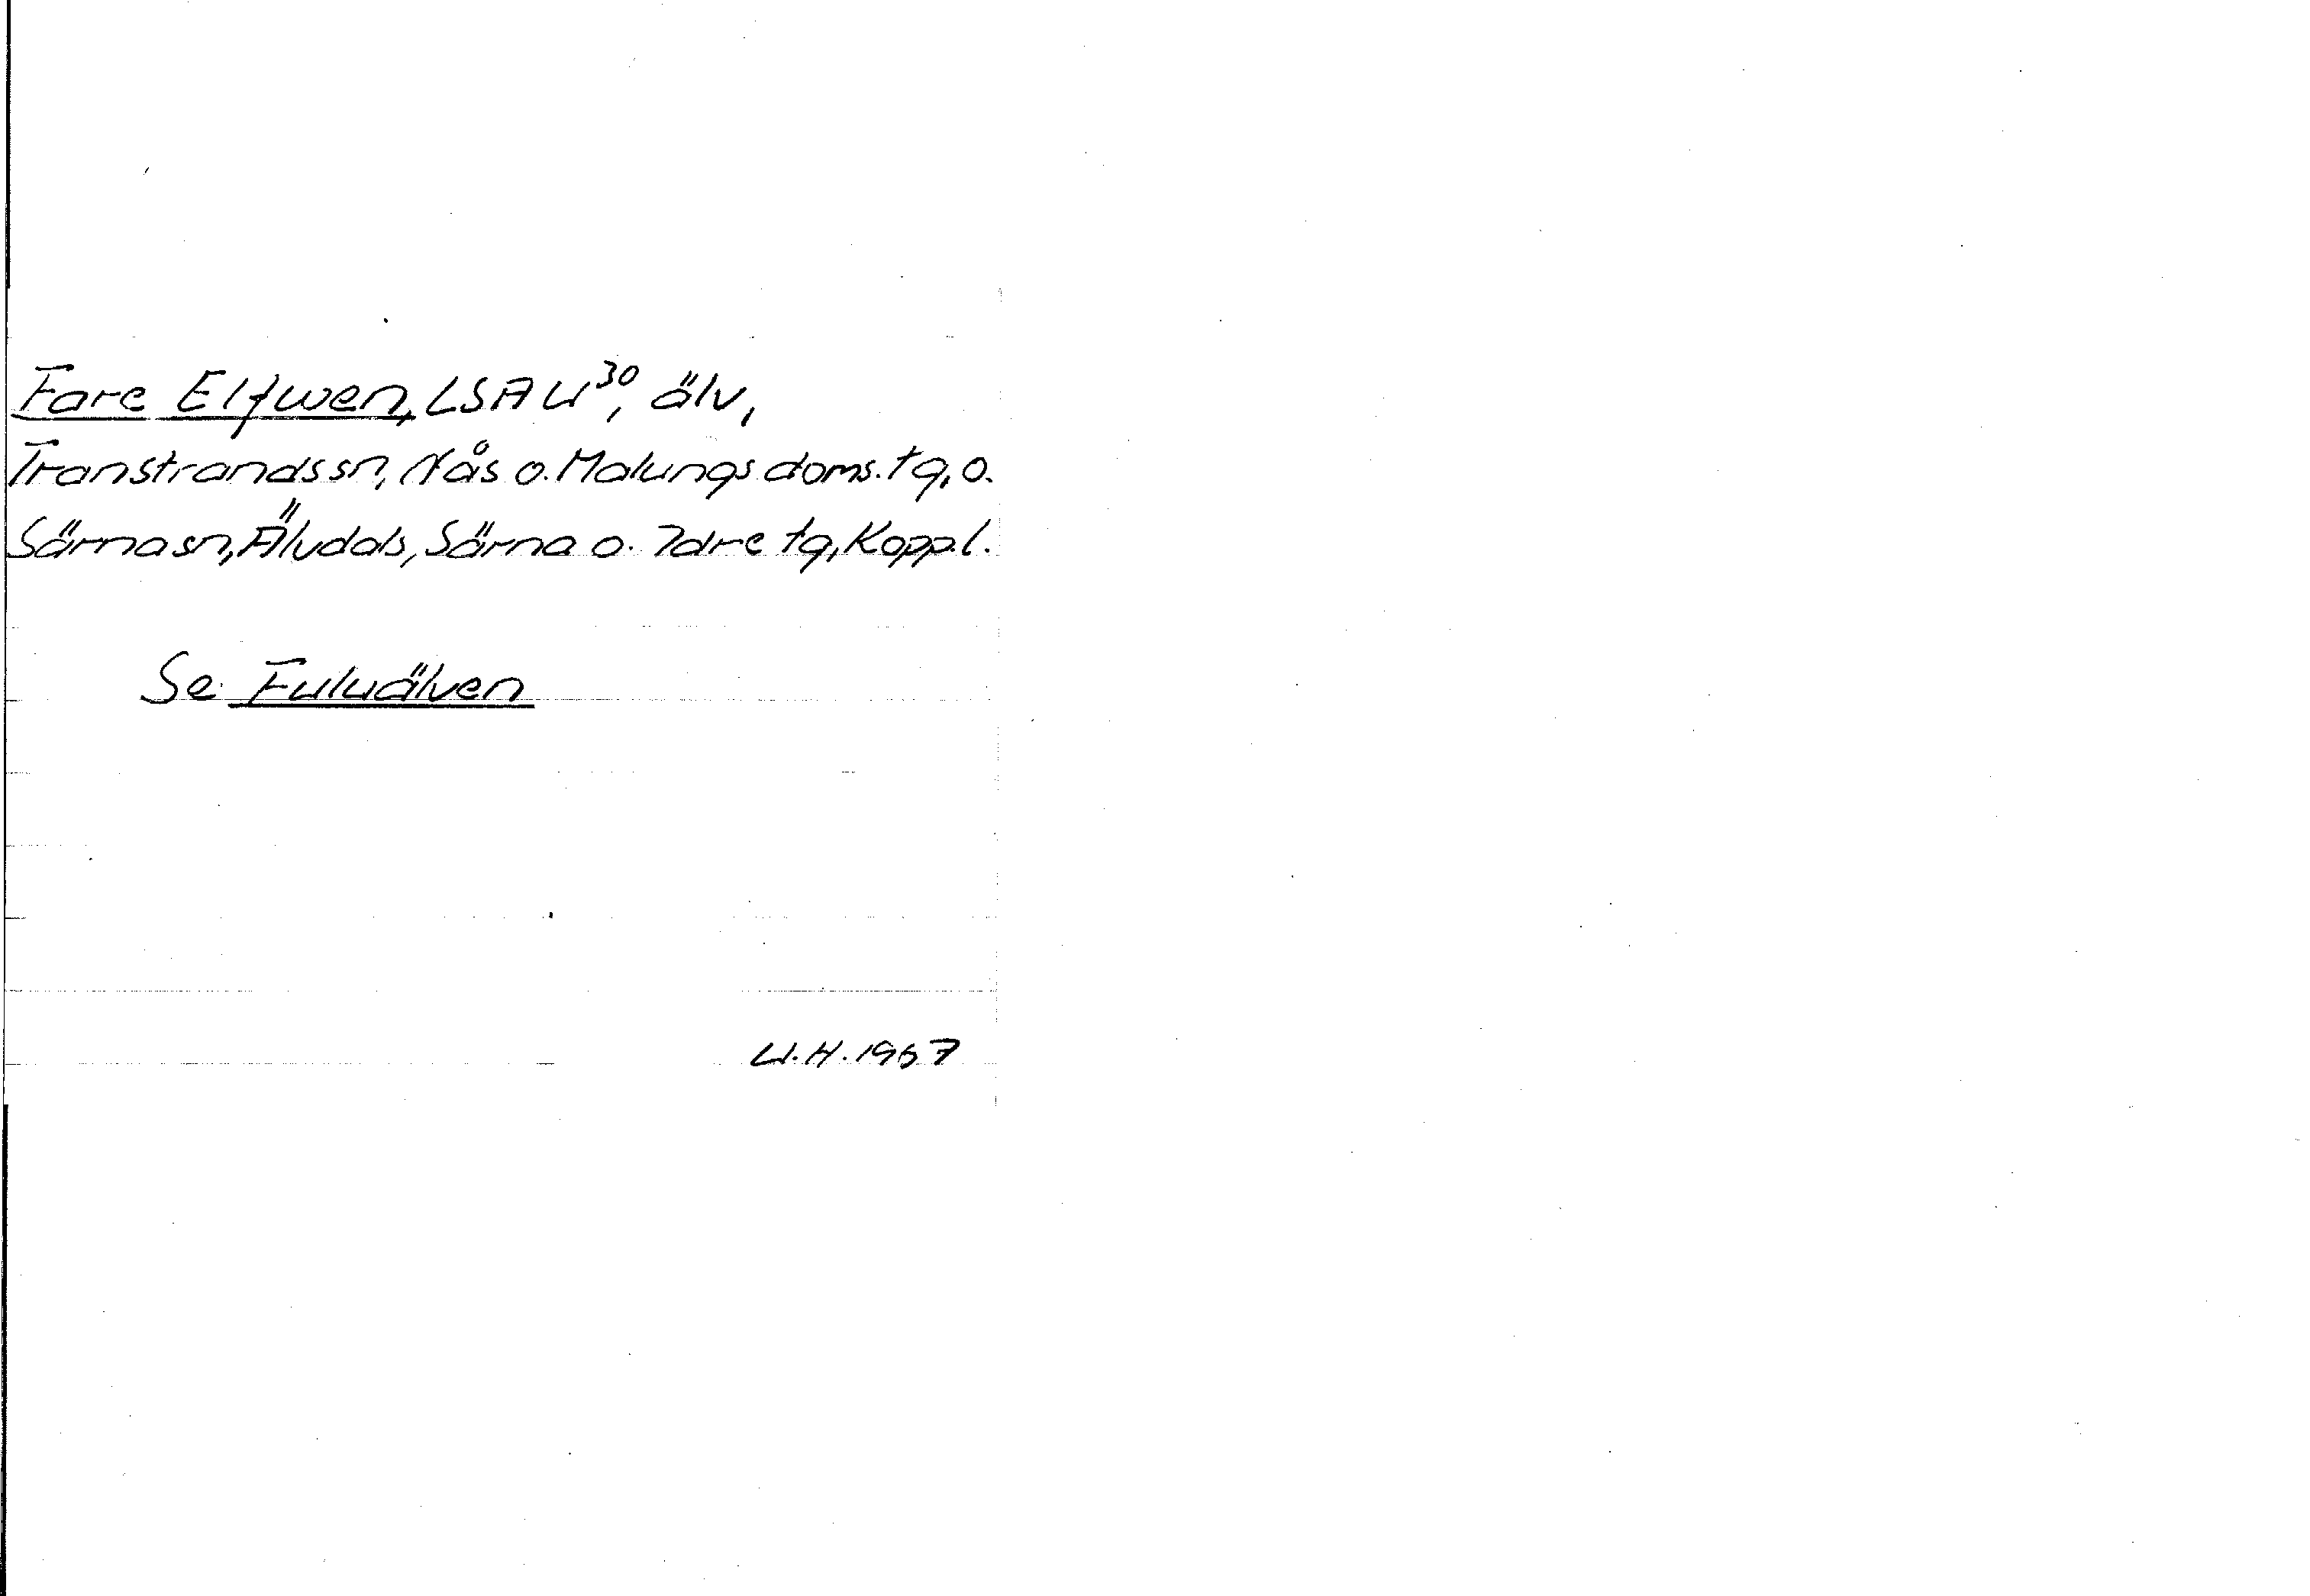 Fare Elfwen, LSA W³⁰, älv,
Transtrands sn, Nås o. Malungs doms. tg, o.
Särna sn, Älvdals, Särna o. Idre tg, Kopp.l.
Se Fuluälven
W.H. 1967